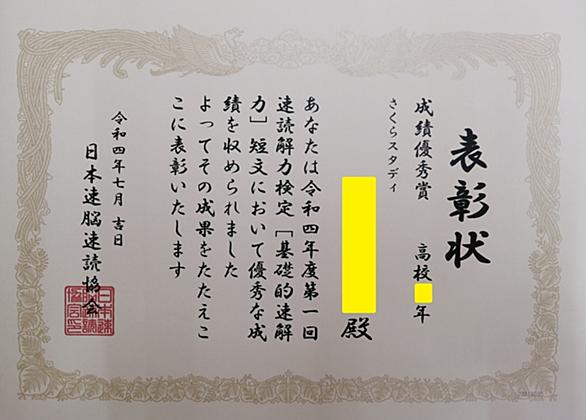 表彰状
成績優秀賞 高校 年
さくらスタディ
殿
あなたは令和四年度第一回
速読解力検定［基礎的速解
力］短文において優秀な成
績を収められました
よってその成果をたたえこ
こに表彰いたします
令和四年七月 吉日
日本速脳速読協会